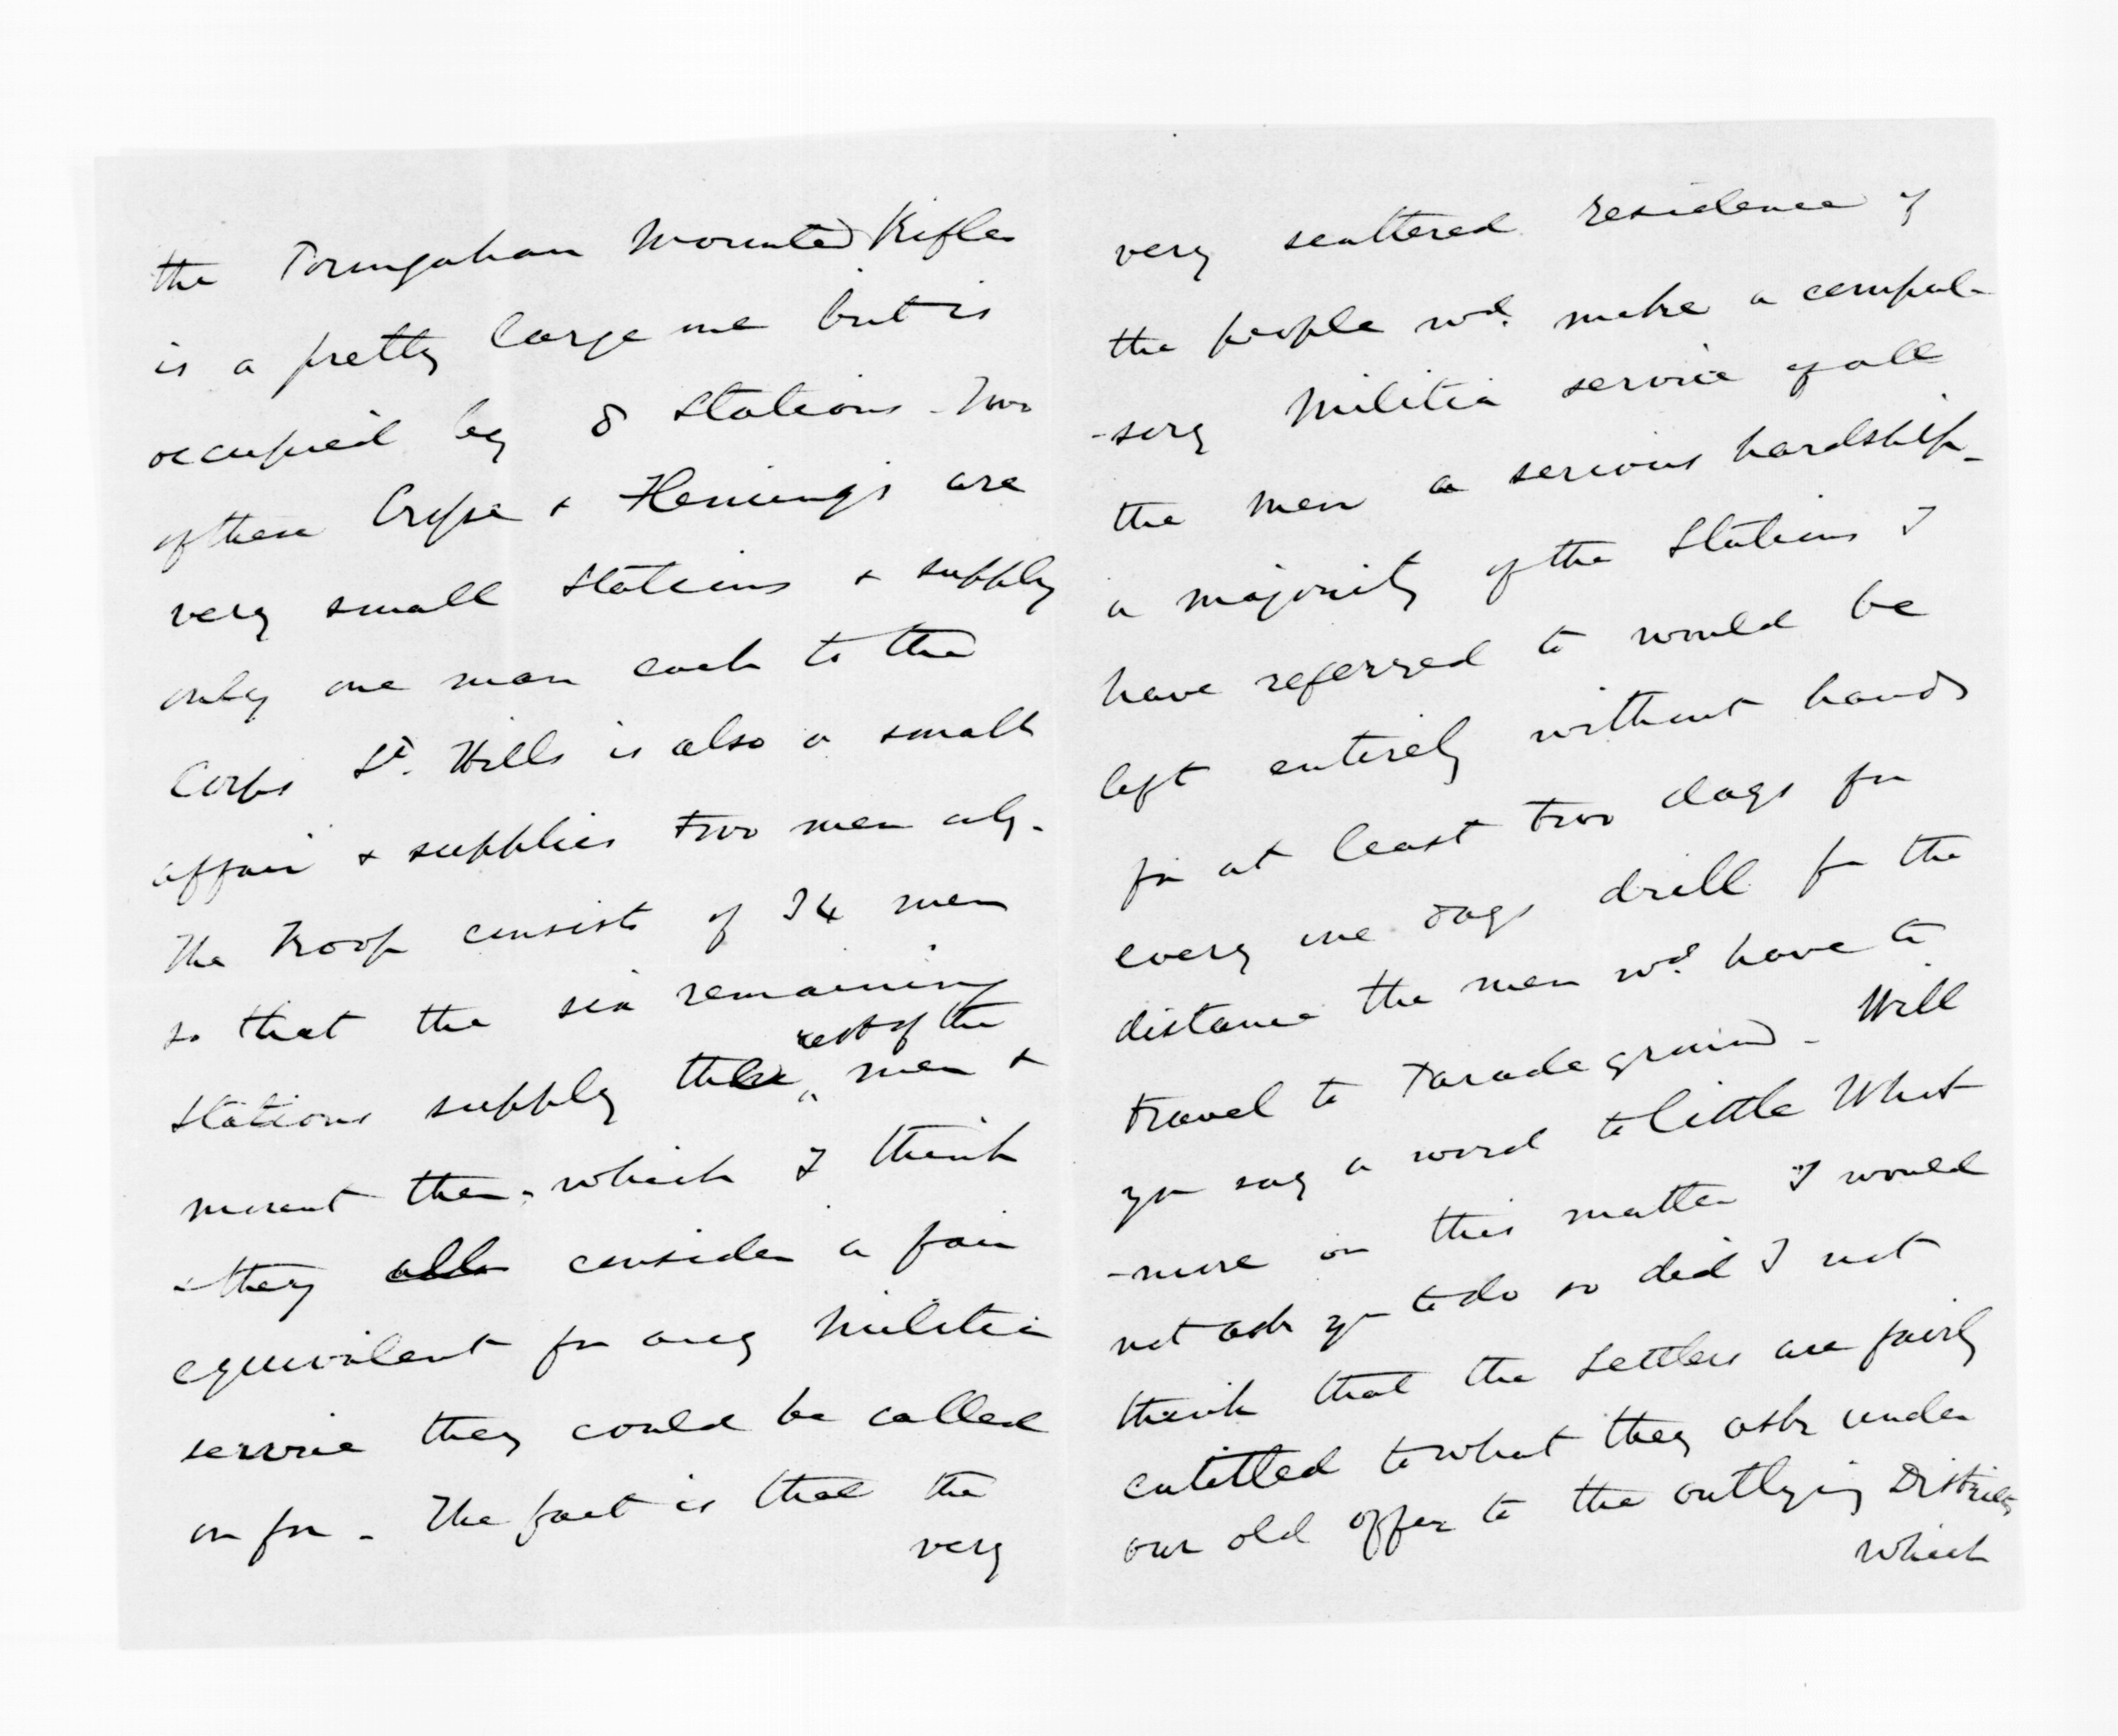 the Porangahau Mounted Rifles
is a pretty large one but is
occupied by 8 Stations - Two
of these Crosse & Hemings are
very small Stations & supply
only one man each to the
Corps St. Hills is also a small
affair & supplies two men only.
The Troop consists of 34 men
so that the six remaining
rest of the
Stations supply the men &
mount them, which I think
& they all consider a fair
equivalent for any Militia
service they could be called
on for - The fact is that the
very
very scattered residence of
the people wd. make a compul-
-sory Militia service of all
the men a serious hardship -
a majority of the Stations I
have referred to would be
left entirely without hands
for at least two days for
every one days drill for the
distance the men wd. have to
travel to Parade ground - Will
you say a word to little Whit
-more on this matter I would
not ask you to do so did I not
think that the Settlers are fairly
entitled to what they ask under
our old offer to the outlying Districts
which